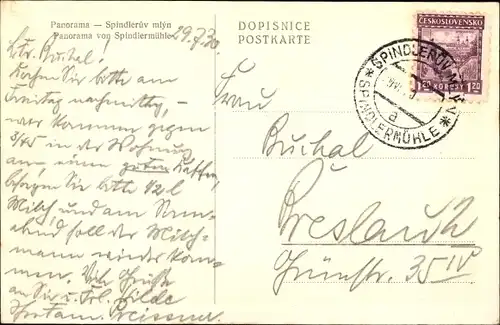 Panorama — Spindlerův mlýn
Panorama von Spindlermühle
29.7.30.
Ltr. Buchal!
Kochen Sie bitte am
Freitag nachmittg,
wir kommen gegen
3/45 in der Wohnung
an, einen guten Kaffee,
besorgen Sie bitte 1/2 l
Milch, und am Sonn-
abend soll der Milch-
mann wieder kom-
men. Viele Grüße
an Sie u. Frl. Hilde
Preissner.
DOPISNICE
POSTKARTE
ČESKOSLOVENSKO
1.20 KORUNY 1.20
SPINDLERŮV MLÝN
a
SPINDLERMÜHLE
Frau
Buchal
Breslau
Grünstr. 35 IV